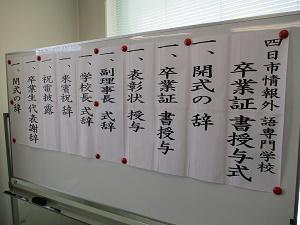 四日市情報外語専門学校
卒業証書授与式
一、開式の辞
一、卒業証書授与
一、表彰状 授与
一、副理事長 式辞
一、学校長 式辞
一、来賓祝辞
一、祝電披露
一、卒業生代表謝辞
一、閉式の辞